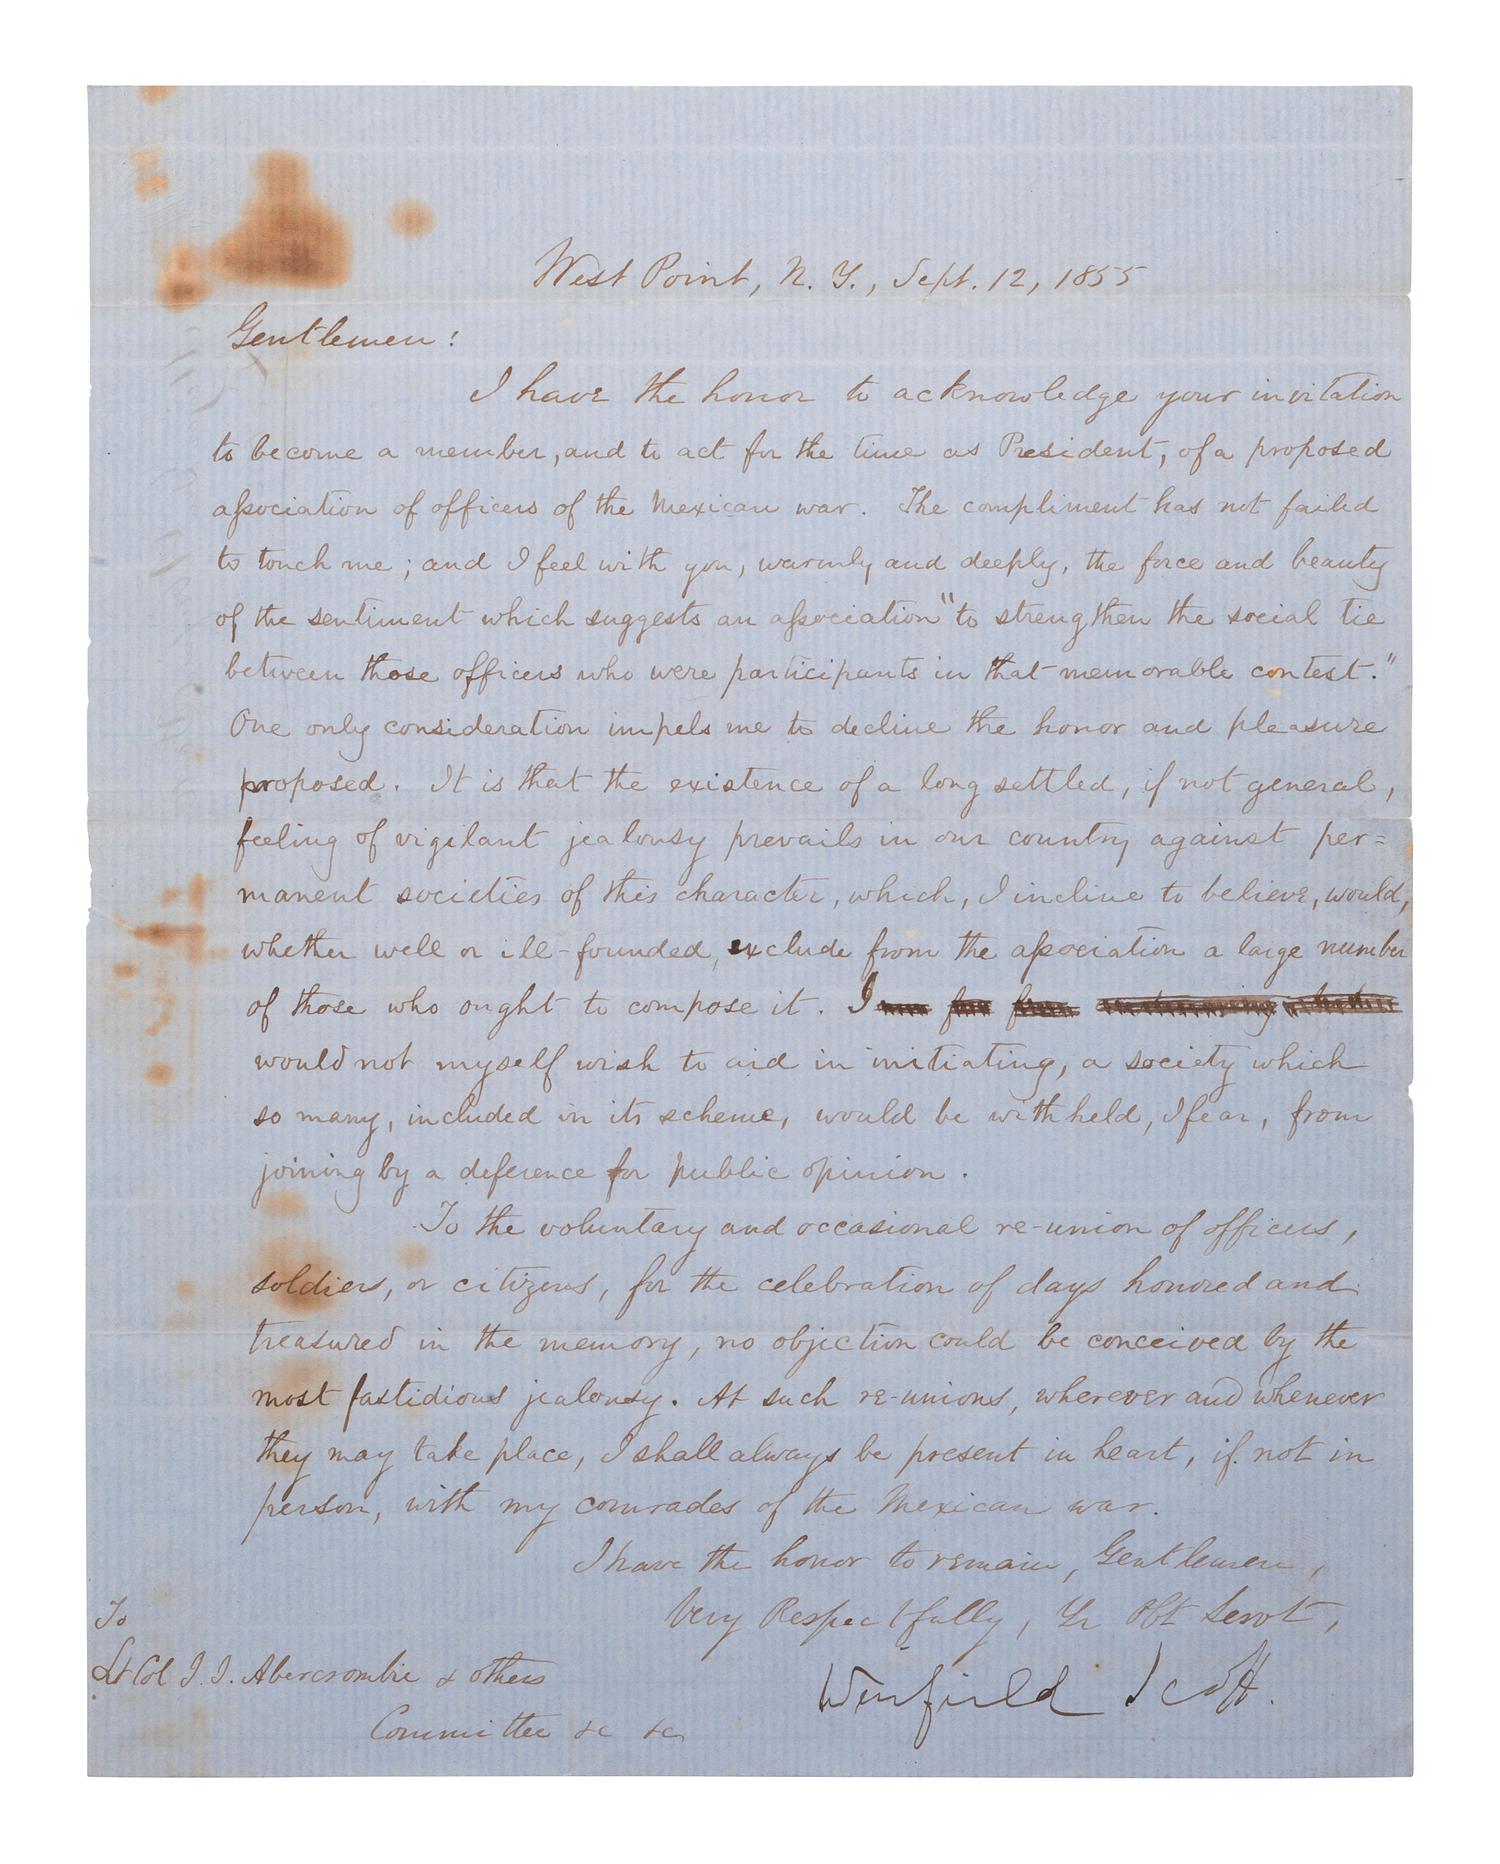 West Point, N. Y., Sept. 12, 1855
Gentlemen:
I have the honor to acknowledge your invitation
to become a member, and to act for the time as President, of a proposed
aſsociation of officers of the Mexican war. The compliment has not failed
to touch me; and I feel with you, warmly and deeply, the force and beauty
of the sentiment which suggests an aſsociation "to strengthen the social tie
between those officers who were participants in that memorable contest."
One only consideration impels me to decline the honor and pleasure
proposed. It is that the existence of a long settled, if not general,
feeling of vigilant jealousy prevails in our country against per=
manent societies of this character, which, I incline to believe, would,
whether well or ill-founded, exclude from the aſsociation a large number
of those who ought to compose it. I
would not myself wish to aid in initiating, a society which
so many, included in its scheme, would be withheld, I fear, from
joining by a deference for public opinion.
To the voluntary and occasional re-union of officers,
soldiers, or citizens, for the celebration of days honored and
treasured in the memory, no objection could be conceived by the
most fastidious jealousy. At such re-unions, wherever and whenever
they may take place, I shall always be present in heart, if not in
person, with my comrades of the Mexican war.
I have the honor to remain, Gentlemen,
Very Respectfully, Yr Obt Servt,
Winfield Scott.
To
Lt Col J. J. Abercrombie & others
Committee &c &c